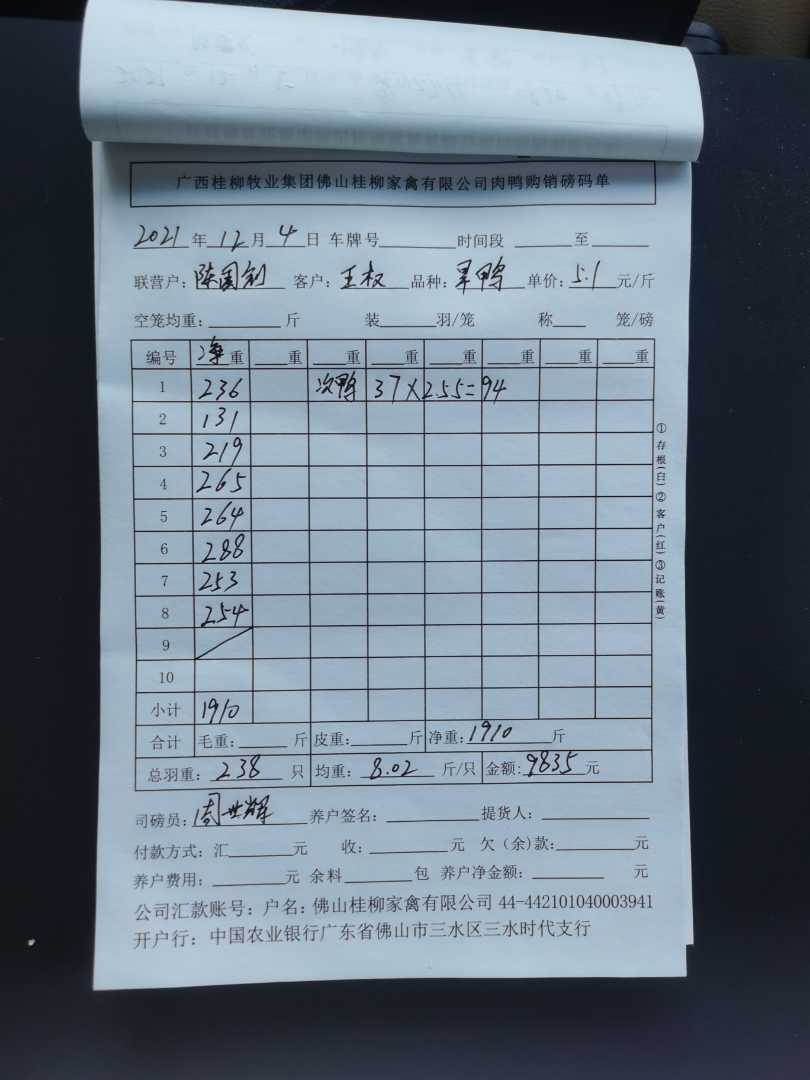 广西桂柳牧业集团佛山桂柳家禽有限公司肉鸭购销磅码单
2021年12月4日 车牌号 时间段 至
联营户:陈国钊 客户:王权 品种:旱鸭 单价:5.1元/斤
空笼均重: 斤 装 羽/笼 称 笼/磅
编号 净重 重 重 重 重 重 重 重
1 236 次鸭 37×2.55=94
2 131
3 219
4 265
5 264
6 288
7 253
8 254
9
10
小计 1910
合计 毛重: 斤 皮重: 斤 净重:1910斤
总羽重:238只 均重:8.02斤/只 金额:9835元
司磅员:周世辉 养户签名: 提货人:
付款方式:汇 元 收: 元 欠(余)款: 元
养户费用: 元 余料 包 养户净金额: 元
公司汇款账号:户名:佛山桂柳家禽有限公司 44-442101040003941
开户行:中国农业银行广东省佛山市三水区三水时代支行
①存根(白)②客户(红)③记账(黄)